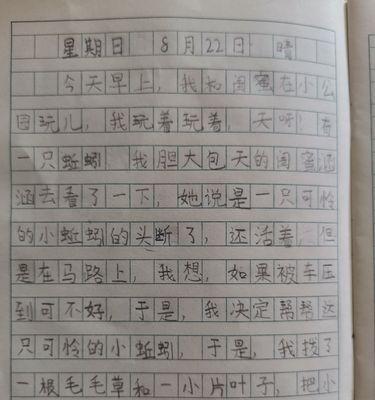 星期日 8月22日 晴
今天早上，我和闺蜜在小公
园玩儿，我玩着玩着，天呀！有
一只蚯蚓 我胆大包天的闺蜜涵
涵去看了一下，她说是一只可怜
的小蚯蚓的头断了，还活着，但
是在马路上，我想，如果被车压
到可不好，于是，我决定帮帮这
只可怜的小蚯蚓，于是，我拨了
一根毛毛草和一小片叶子，把小